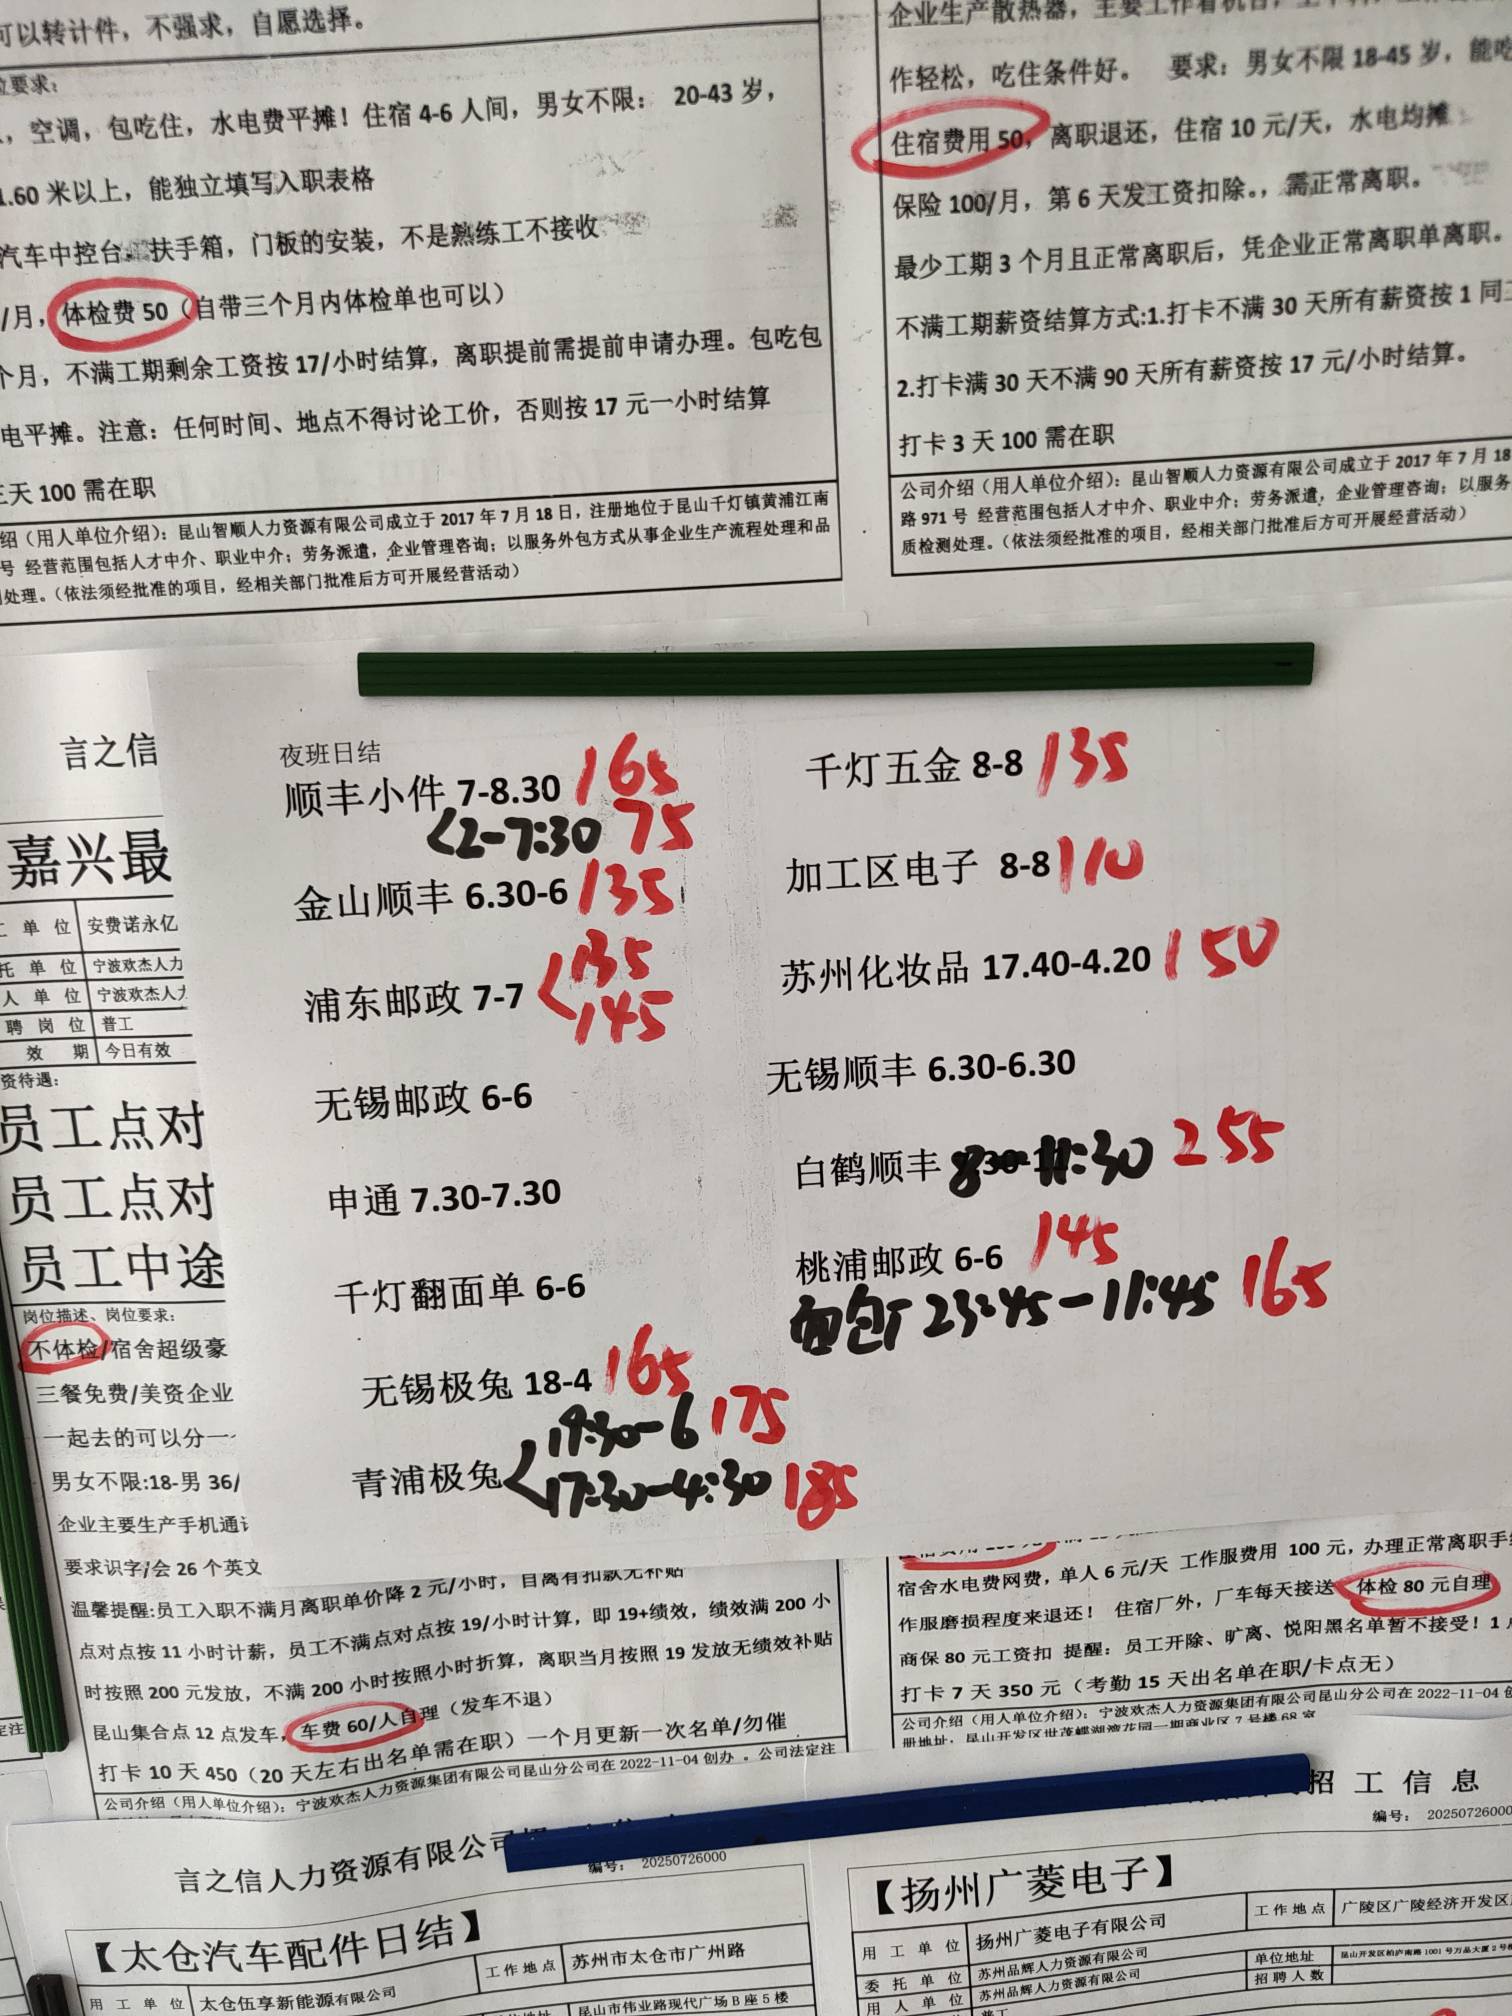 可以转计件，不强求，自愿选择。
位要求：
，空调，包吃住，水电费平摊！住宿 4-6 人间，男女不限： 20-43 岁，
1.60 米以上，能独立填写入职表格
汽车中控台，扶手箱，门板的安装，不是熟练工不接收
/月，体检费 50（自带三个月内体检单也可以）
个月，不满工期剩余工资按 17/小时结算，离职提前需提前申请办理。包吃包
电平摊。注意：任何时间、地点不得讨论工价，否则按 17 元一小时结算
三天 100 需在职
绍（用人单位介绍）：昆山智顺人力资源有限公司成立于 2017 年 7 月 18 日，注册地位于昆山千灯镇黄浦江南
号 经营范围包括人才中介、职业中介；劳务派遣，企业管理咨询；以服务外包方式从事企业生产流程处理和品
处理。（依法须经批准的项目，经相关部门批准后方可开展经营活动）
企业生产散热器，主要工作看机台，
作轻松，吃住条件好。 要求：男女不限 18-45 岁，能吃
住宿费用 50，离职退还，住宿 10 元/天，水电均摊
保险 100/月，第 6 天发工资扣除。，需正常离职。
最少工期 3 个月且正常离职后，凭企业正常离职单离职。
不满工期薪资结算方式:1.打卡不满 30 天所有薪资按 1 同工
2.打卡满 30 天不满 90 天所有薪资按 17 元/小时结算。
打卡 3 天 100 需在职
公司介绍（用人单位介绍）：昆山智顺人力资源有限公司成立于 2017 年 7 月 18
路 971 号 经营范围包括人才中介、职业中介；劳务派遣，企业管理咨询；以服务
质检测处理。（依法须经批准的项目，经相关部门批准后方可开展经营活动）
夜班日结
顺丰小件 7-8.30 165
2-7:30 75
金山顺丰 6.30-6 135
浦东邮政 7-7 135
145
无锡邮政 6-6
申通 7.30-7.30
千灯翻面单 6-6
无锡极兔 18-4 165
青浦极兔 19:30-6 175
17:30-4:30 185
千灯五金 8-8 135
加工区电子 8-8 110
苏州化妆品 17.40-4.20 150
无锡顺丰 6.30-6.30
白鹤顺丰 8-11:30 255
桃浦邮政 6-6 145
面包厂 23:45-11:45 165
言之信
嘉兴最
工 单 位 安费诺永亿
托 单 位 宁波欢杰人力
人 单 位 宁波欢杰人力
聘 岗 位 普工
效 期 今日有效
资待遇：
员工点对
员工点对
员工中途
岗位描述、岗位要求：
不体检/宿舍超级豪
三餐免费/美资企业
一起去的可以分一
男女不限:18-男 36/
企业主要生产手机通讯
要求识字/会 26 个英文
温馨提醒:员工入职不满月离职单价降 2 元/小时，自离有扣款无补贴
点对点按 11 小时计薪，员工不满点对点按 19/小时计算，即 19+绩效，绩效满 200 小
时按照 200 元发放，不满 200 小时按照小时折算，离职当月按照 19 发放无绩效补贴
昆山集合点 12 点发车，车费 60/人自理（发车不退）
打卡 10 天 450（20 天左右出名单需在职）一个月更新一次名单/勿催
公司介绍（用人单位介绍）：宁波欢杰人力资源集团有限公司昆山分公司在 2022-11-04 创办 。公司法定注
宿舍水电费网费，单人 6 元/天 工作服费用 100 元，办理正常离职手续
作服磨损程度来退还！ 住宿厂外，厂车每天接送 体检 80 元自理
商保 80 元工资扣 提醒：员工开除、旷离、悦阳黑名单暂不接受！1
打卡 7 天 350 元（考勤 15 天出名单在职/卡点无）
公司介绍（用人单位介绍）：宁波欢杰人力资源集团有限公司昆山分公司在 2022-11-04 创
册地址：昆山开发区世茂蝶湖湾花园一期商业区 7 号楼 68 室
言之信人力资源有限公司
编号： 20250726000
【太仓汽车配件日结】
工作地点 苏州市太仓市广州路
用 工 单 位 太仓伍享新能源有限公司
昆山市伟业路现代广场 B 座 5 楼
招 工 信 息
编号： 20250726000
【扬州广菱电子】
用 工 单 位 扬州广菱电子有限公司 工作地点 广陵区广陵经济开发区
委 托 单 位 苏州品辉人力资源有限公司 单位地址 昆山开发区柏庐南路 1001 号万品大厦 2 号楼
用 人 单 位 苏州品辉人力资源有限公司 招聘人数
普工